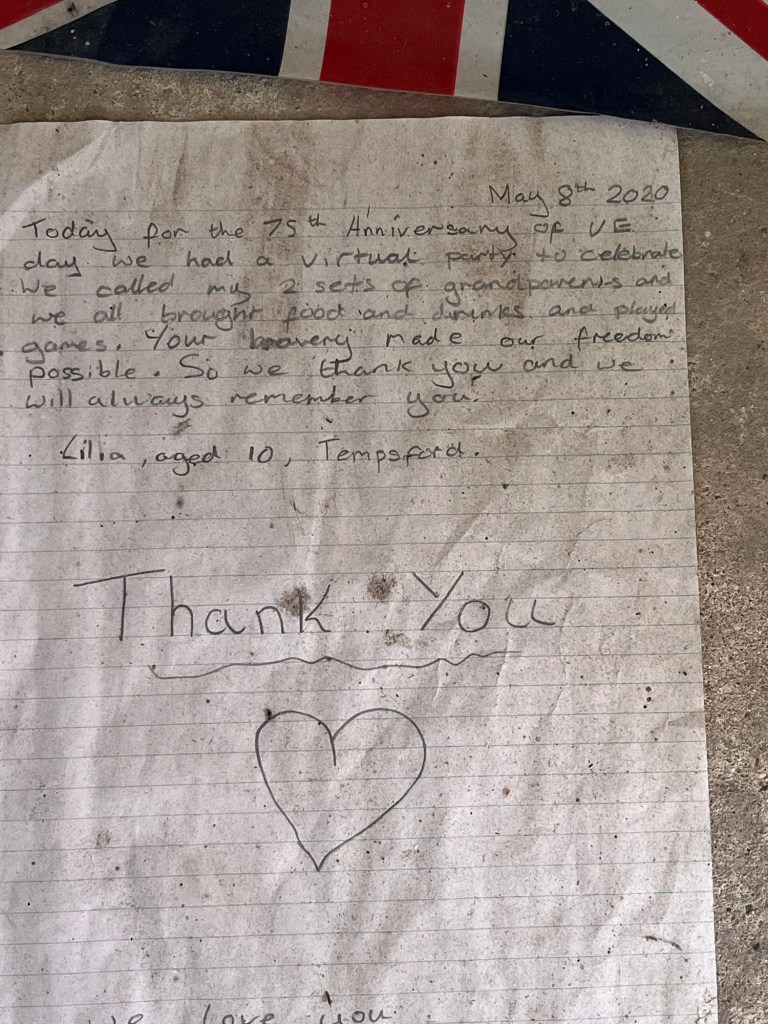 May 8th 2020
Today for the 75th Anniversary of VE
day we had a virtual party to celebrate
We called my 2 sets of grandparents and
we all brought food and drinks and played
games. Your bravery made our freedom
possible. So we thank you and we
will always remember you.
Lilia, aged 10, Tempsford.
Thank You
we love you